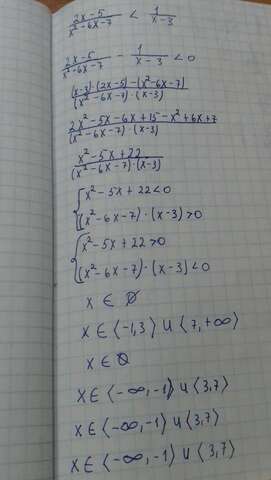 (2x-5)/(x²-6x-7) < 1/(x-3)
(2x-5)/(x²-6x-7) - 1/(x-3) < 0
((x-3)·(2x-5)-(x²-6x-7))/((x²-6x-7)·(x-3))
(2x²-5x-6x+15-x²+6x+7)/((x²-6x-7)·(x-3))
(x²-5x+22)/((x²-6x-7)·(x-3))
{x²-5x+22<0
(x²-6x-7)·(x-3)>0
{x²-5x+22>0
(x²-6x-7)·(x-3)<0
x ∈ ∅
x ∈ ⟨-1,3⟩ ∪ ⟨7,+∞⟩
x ∈ ∅
x ∈ ⟨-∞,-1⟩ ∪ ⟨3,7⟩
x ∈ ⟨-∞,-1⟩ ∪ ⟨3,7⟩
x ∈ ⟨-∞,-1⟩ ∪ ⟨3,7⟩